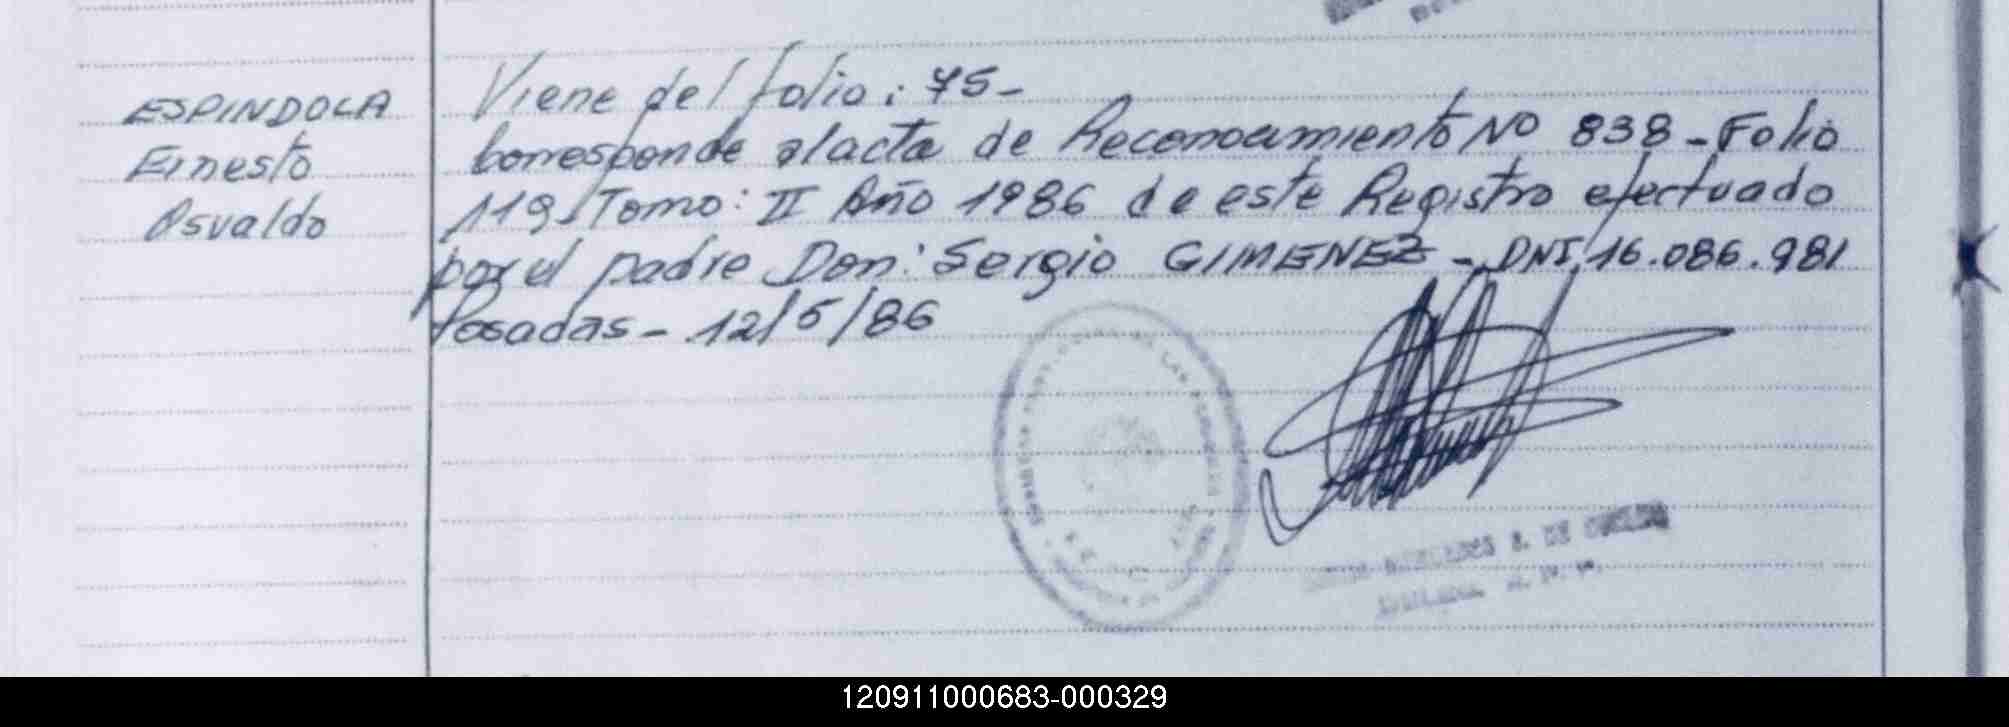 ESPINDOLA
Ernesto
Osvaldo
Viene del folio: 75-
Corresponde al acta de Reconocimiento Nº 838 - Folio
119 Tomo: II Año 1986 de este Registro efectuado
por el padre Don: Sergio GIMENEZ - DNI 16.086.981
Posadas - 12/5/86
120911000683-000329